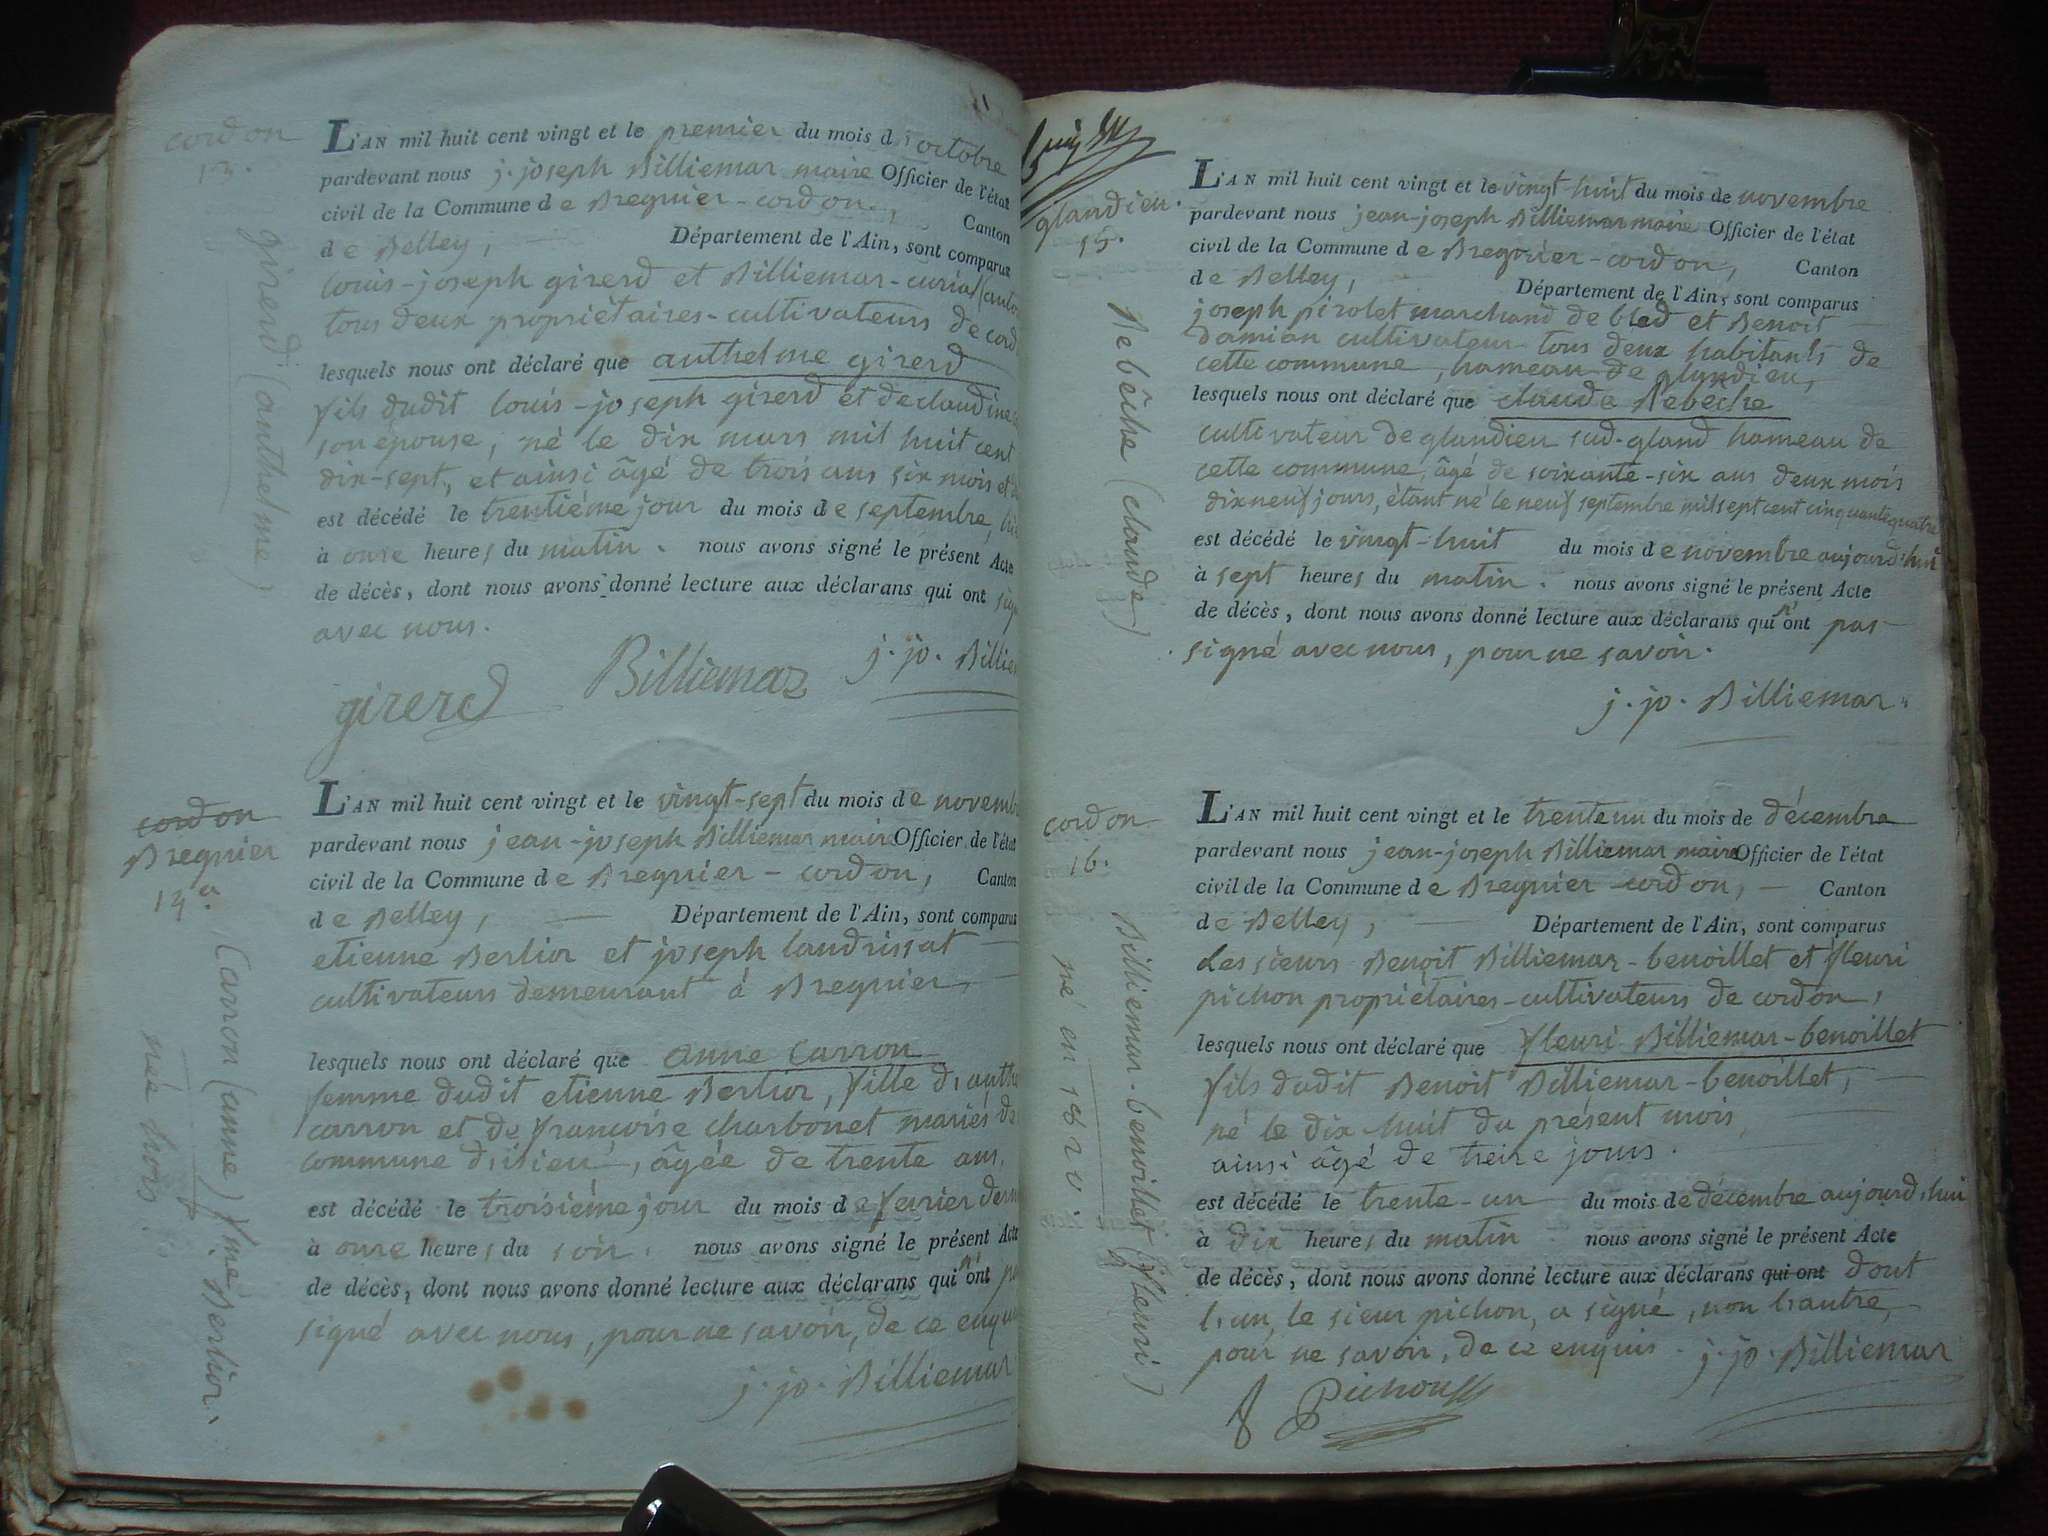 cordon
13.
girerd (anthelme)
L'AN mil huit cent vingt et le premier du mois d'octobre
pardevant nous j. joseph Billiemaz maire Officier de l'état
civil de la Commune de Bregnier-cordon, Canton
de Belley, Département de l'Ain, sont comparus
louis-joseph girerd et Billiemaz-curial
tous deux propriétaires-cultivateurs de
lesquels nous ont déclaré que anthelme girerd
fils dudit louis-joseph girerd et de claudine
son épouse, né le dix mars mil huit cent
dix-sept, et ainsi âgé de trois ans six mois et
est décédé le trentième jour du mois de septembre,
à onze heures du matin. nous avons signé le présent Acte
de décès, dont nous avons donné lecture aux déclarans qui ont
avec nous.
girerd Billiemaz j. jo.
cordon
Bregnier
14
Carron (anne) fme Berlior.
née hors
L'AN mil huit cent vingt et le vingt-sept du mois de
pardevant nous jean-joseph Billiemaz maire Officier de l'état
civil de la Commune de Bregnier-cordon, Canton
de Belley, Département de l'Ain, sont comparus
etienne Berlior et joseph Landrissat
cultivateurs demeurant à Bregnier,
lesquels nous ont déclaré que anne Carron
femme dudit etienne Berlior, fille d'
carron et de françoise charbonet mariés de
commune d'isieu, âgée de trente ans.
est décédé le troisième jour du mois de fevrier
à onze heures du soir. nous avons signé le présent Acte
de décès, dont nous avons donné lecture aux déclarans qui n'ont
signé avec nous, pour ne savoir, de ce
j. jo. Billiemaz
glandieu.
15.
Rebêche (claude)
L'AN mil huit cent vingt et le vingt-huit du mois de novembre
pardevant nous jean-joseph Billiemaz maire Officier de l'état
civil de la Commune de Bregnier-cordon, Canton
de Belley, Département de l'Ain, sont comparus
joseph pirolet marchand de bled et Benoit
Damian cultivateur tous deux habitants de
cette commune, hameau de glandieu,
lesquels nous ont déclaré que claude Rebêche
cultivateur de glandieu sud-gland hameau de
cette commune, âgé de soixante-six ans deux mois
dix neuf jours, étant né le neuf septembre mil sept cent cinquante quatre
est décédé le vingt-huit du mois de novembre aujourd'hui
à sept heures du matin. nous avons signé le présent Acte
de décès, dont nous avons donné lecture aux déclarans qui n'ont pas
signé avec nous, pour ne savoir.
j. jo. Billiemaz
cordon
16.
Billiemaz-benoillet (fleuri)
né en 1820.
L'AN mil huit cent vingt et le trente un du mois de décembre
pardevant nous jean-joseph Billiemaz maire Officier de l'état
civil de la Commune de Bregnier-cordon, Canton
de Belley, Département de l'Ain, sont comparus
Les sieurs Benoit Billiemaz-benoillet et fleuri
pichon propriétaires-cultivateurs de cordon,
lesquels nous ont déclaré que fleuri Billiemaz-benoillet
fils dudit Benoit Billiemaz-benoillet,
né le dix huit du présent mois,
ainsi âgé de treize jours.
est décédé le trente-un du mois de décembre aujourd'hui
à dix heures du matin nous avons signé le présent Acte
de décès, dont nous avons donné lecture aux déclarans qui ont dont
l'un, le sieur pichon, a signé, non l'autre,
pour ne savoir, de ce enquis. j. jo. Billiemaz
f Pichon